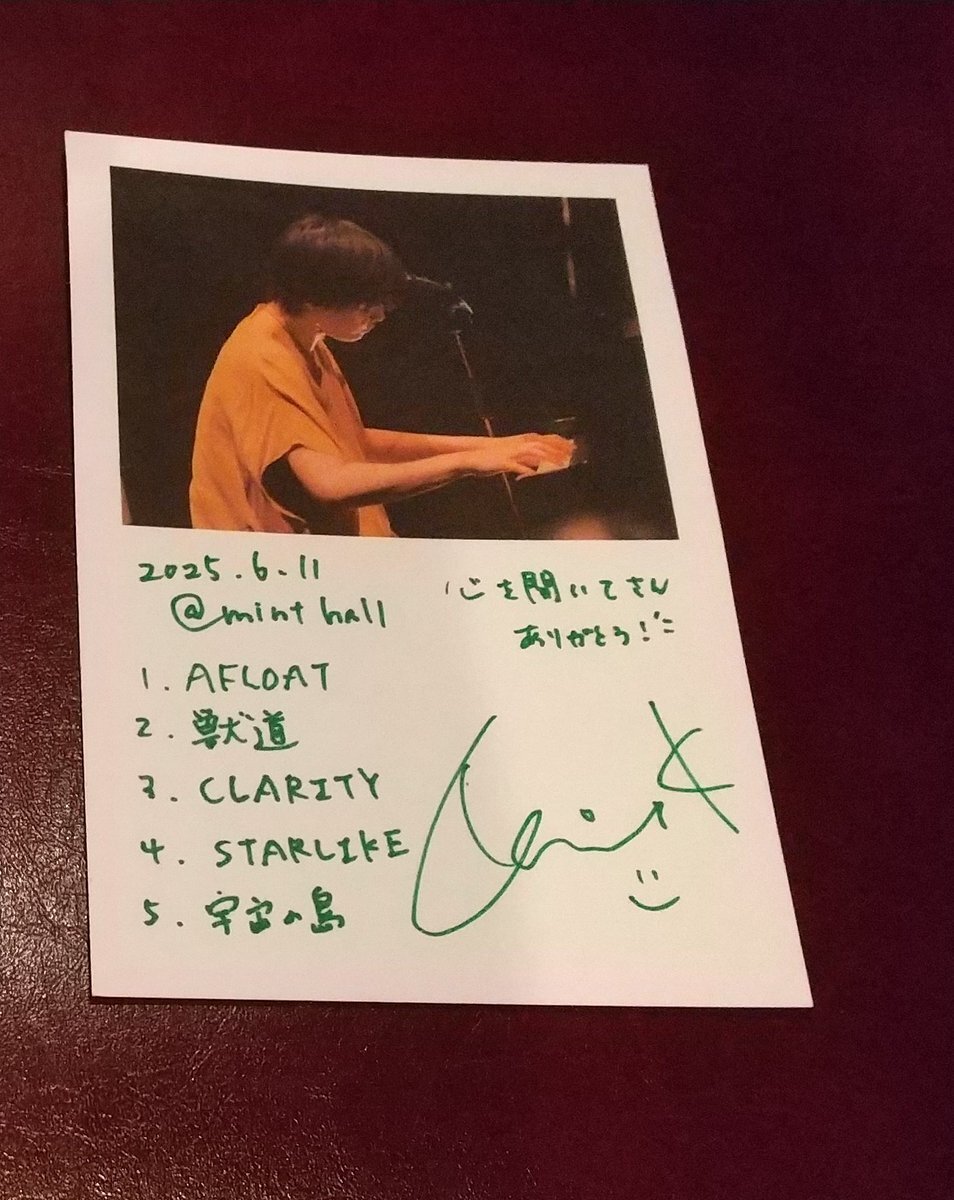 2025.6.11
@mint hall
心を開いてさん
ありがとう!
1. AFLOAT
2. 獣道
3. CLARITY
4. STARLIKE
5. 宇宙の島